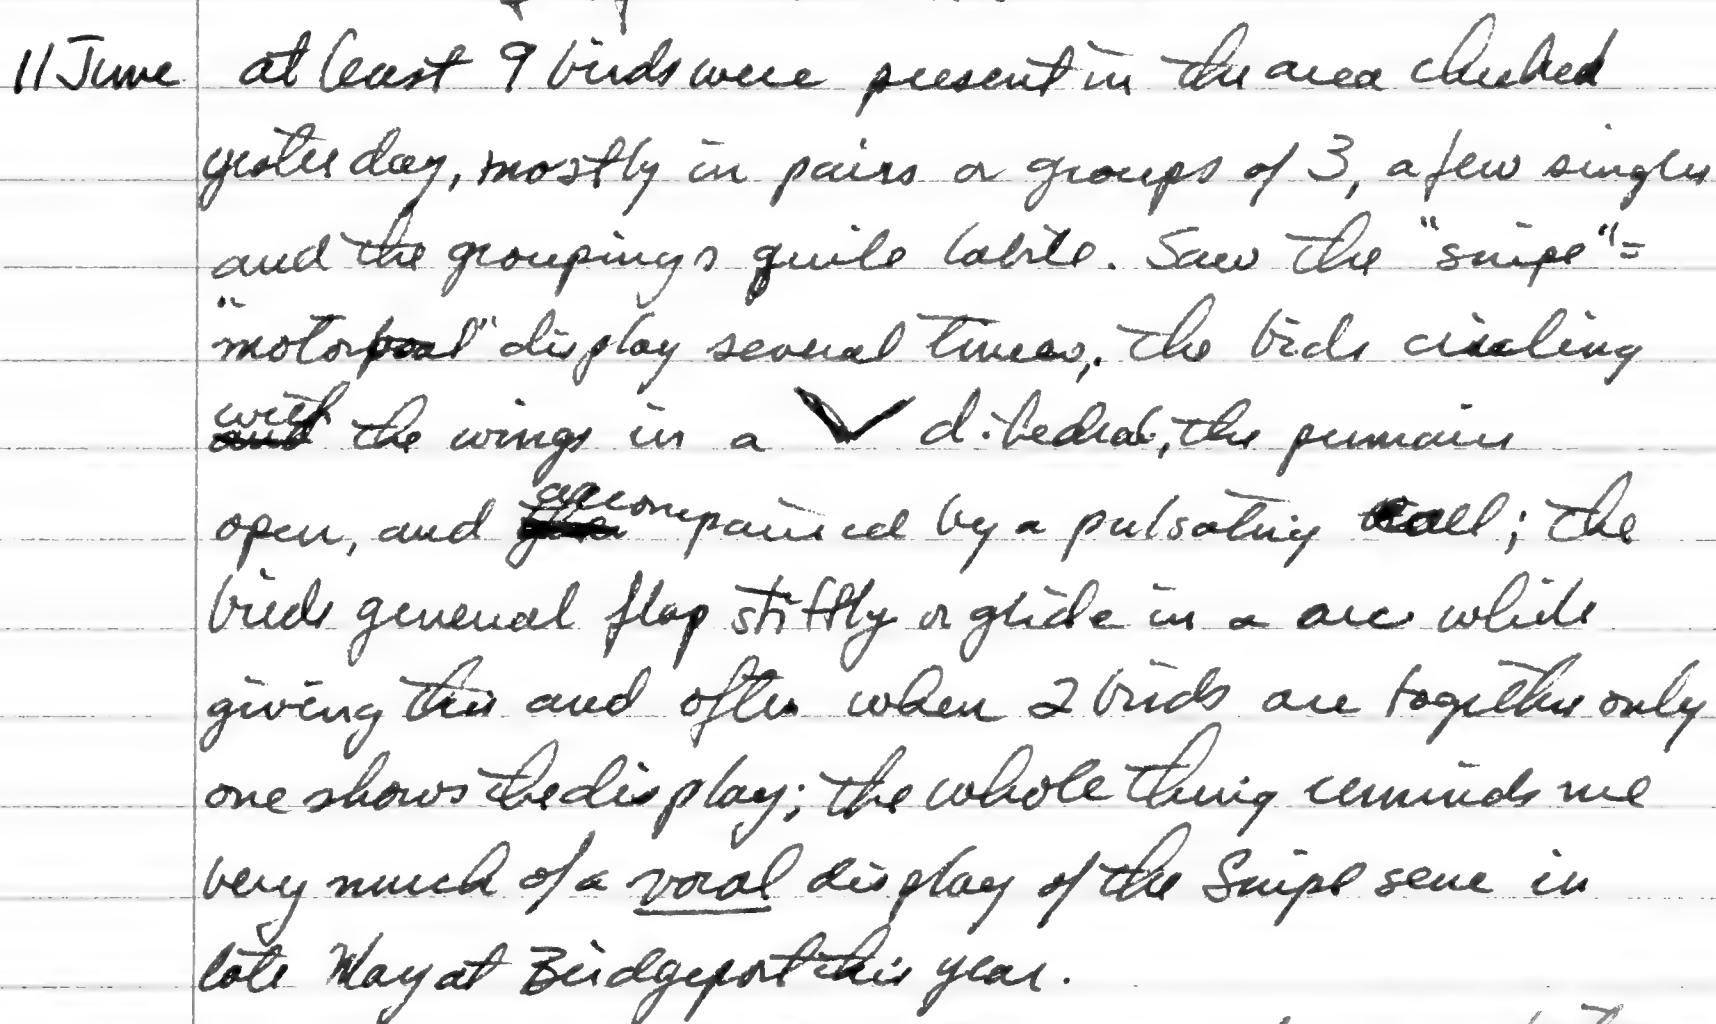 11 June at least 9 birds were present in the area checked
yesterday, mostly in pairs or groups of 3, a few singles
and the groupings quite labile. Saw the "snipe" =
"motorboat" display several times, the birds circling
with the wings in a dihedral, the primaries
open, and accompanied by a pulsating call; the
birds general flap stiffly or glide in a arc while
giving this and often when 2 birds are together only
one shows the display; the whole thing reminds me
very much of a vocal display of the Snipe seen in
late May at Bridgeport this year.